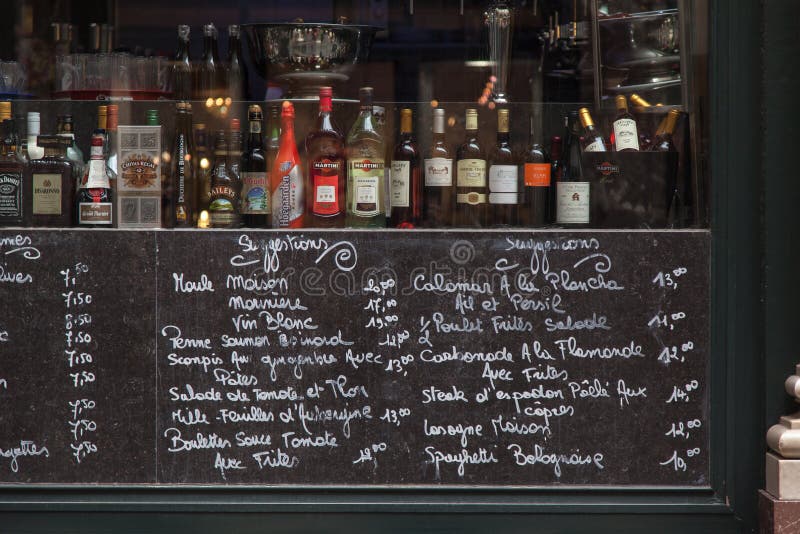 JACK DANIEL'S
DISARONNO
CHIVAS REGAL
BAILEYS
Hoegaarden
MARTINI
MARTINI
7,50
7,50
8,50
7,50
7,50
7,50
7,50
7,50
Suggestions
Moule Maison 20,00
Marinière 17,00
Vin Blanc 19,00
Penne Saumon Epinard
Scampis Au gingembre Avec 13,00
Pâtes
Salade de Tomate et Thon
Mille-Feuilles d'Aubergine 13,00
Boulettes Sauce Tomate 12,00
Avec Frites
Suggestions
Calamar A la Plancha 13,00
Ail et Persil
1/2 Poulet Frites Salade 11,00
Carbonade A la Flamande 12,00
Avec Frites
Steak d'espadon Pôêlé Aux 14,00
câpres
Lasagne Maison 12,00
Spaghetti Bolognaise 10,00
dreamstime